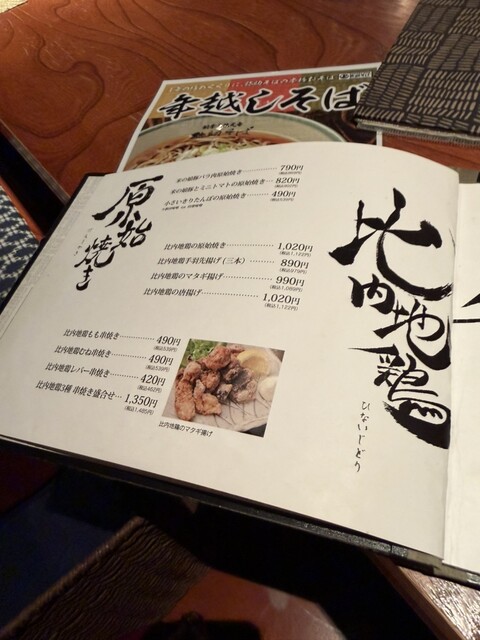 年越しそば
原始焼き
米の娘豚バラ肉原始焼き 790円
米の娘豚とミニトマトの原始焼き 820円
小さいきりたんぽの原始焼き 490円
比内地鶏
ひないじどり
比内地鶏の原始焼き 1,020円
(税込1,122円)
比内地鶏手羽先揚げ(三本) 890円
(税込979円)
比内地鶏のマタギ揚げ 990円
(税込1,089円)
比内地鶏の唐揚げ 1,020円
(税込1,122円)
比内地鶏もも串焼き 490円
(税込539円)
比内地鶏むね串焼き 490円
(税込539円)
比内地鶏レバー串焼き 420円
(税込462円)
比内地鶏3種 串焼き盛合せ 1,350円
(税込1,485円)
比内地鶏のマタギ揚げ